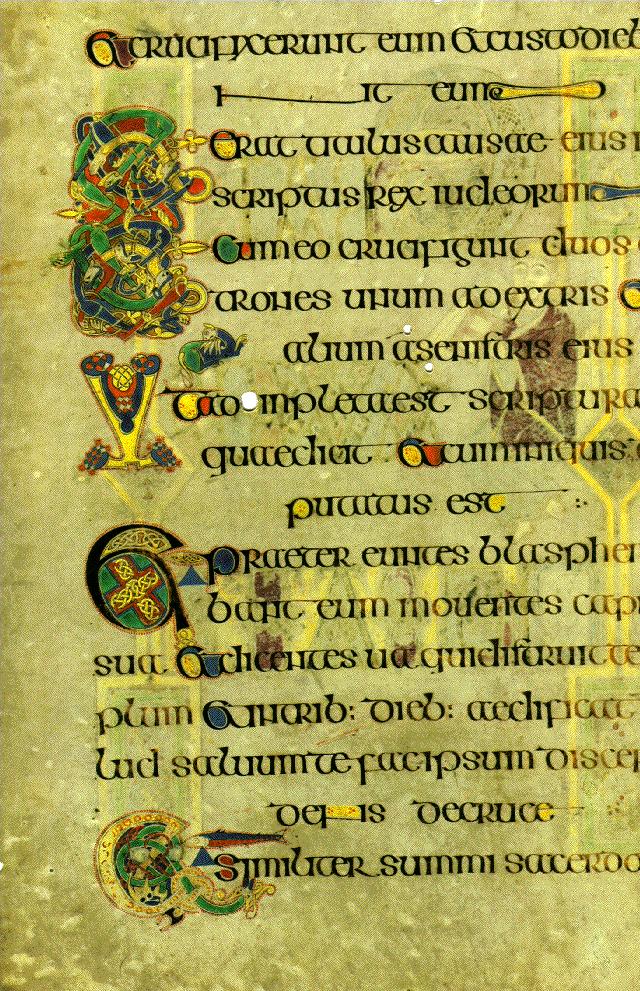 Et crucifixerunt eum Et custodieb
it eum
Erat titulus causae eius
scriptus Rex iudeorum
Cum eo crucifigunt duos
trones unum adextris
alium asenistris eius
Et adinpleta est scriptura
quae dicit Et cum iniquis
putatus est
Et praeter euntes blasphe
bant eum mouentes capi
sua Et dicentes ua qui distruit te
plum Et in trib: dieb: aedificat
lud saluum te fac ipsum discen
dens decruce
Similiter summi sacerdo